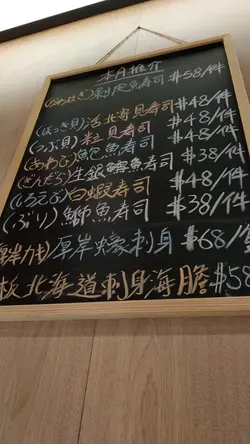 本月推介
(かわはぎ)剝皮魚寿司 $58/件
(ほっき貝)活北寄貝寿司 $48/件
(つぶ貝)粒貝寿司 $48/件
(あわび)鮑魚寿司 $48/件
(ぎんだら)生銀鱈魚寿司 $38/件
(しろえび)白蝦寿司 $48/件
(ぶり)鰤魚寿司 $38/件
厚岸カキ)厚岸蠔刺身 $68/
板北海道刺身海膽 $58